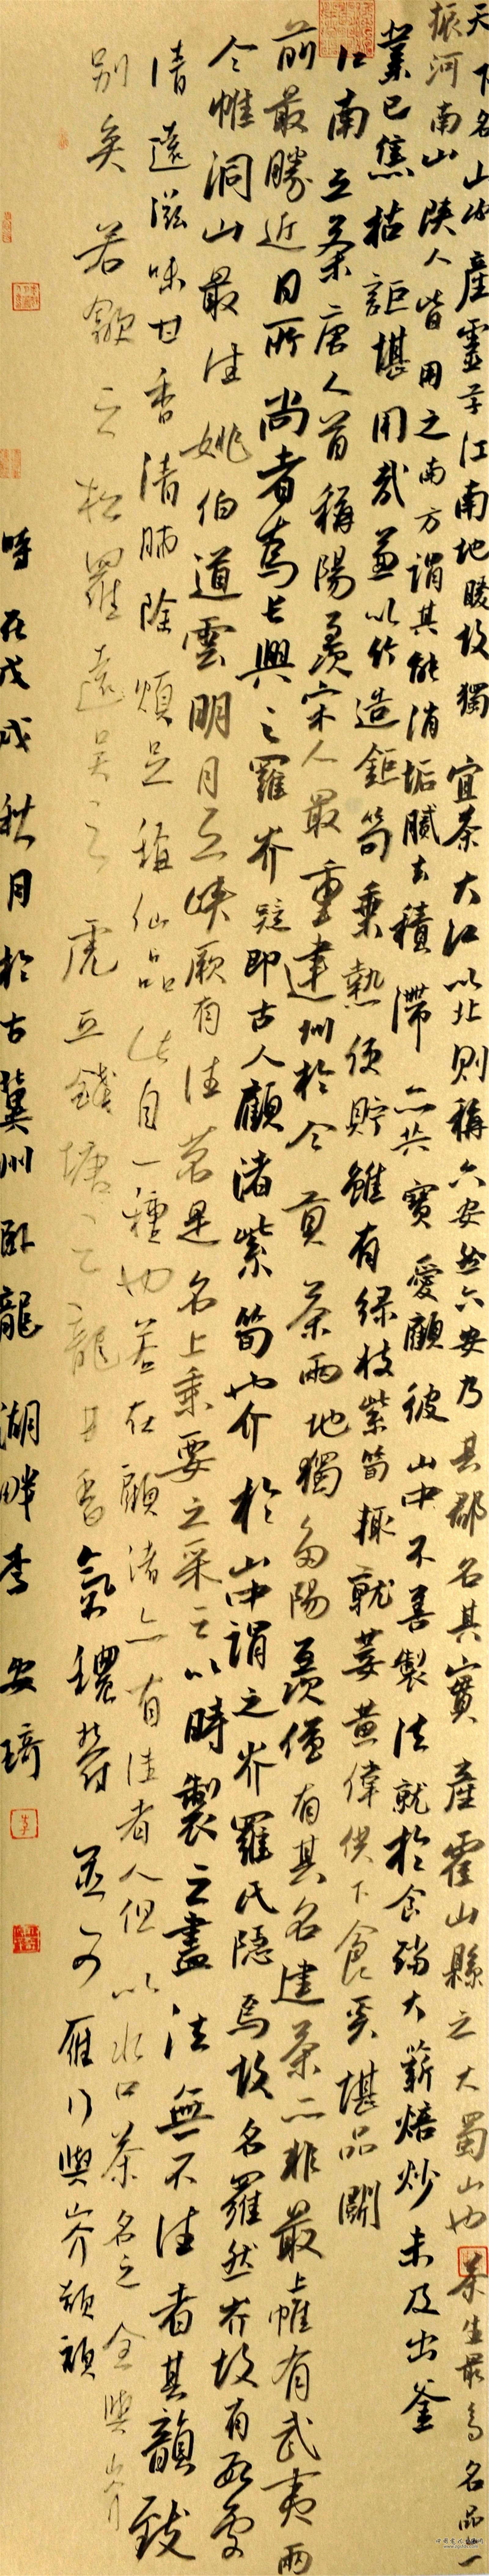 天下名山必產靈草江南地暖故獨宜茶大江以北則稱六安然六安乃其郡名其實產霍山縣之大蜀山也茶生最多名品亦
振河南山陝人皆用之南方謂其能消垢膩去積滯亦共寶愛顧彼山中不善製法就於食鐺大薪焙炒未及出釜
業已焦枯詎堪用哉兼以竹造鉅笱乘熱便貯雖有綠枝紫筍輒就萎黃僅供下食奚堪品鬭
江南之茶唐人首稱陽羨宋人最重建州於今貢茶兩地獨多陽羨僅有其名建茶亦非最上惟有武夷雨
前最勝近日所尚者為長興之羅岕疑即古人顧渚紫筍也介於山中謂之岕羅氏隱焉故名羅然岕故有數處
今惟洞山最佳姚伯道雲明月之峽厥有佳茗是名上乘要之采之以時製之盡法無不佳者其韻致
清遠滋味甘香清肺除煩足稱仙品此自一種也若在顧渚亦有佳者人但以水口茶名之全與岕
別矣若歙之松羅遠吳之虎丘錢塘之龍井香氣穠郁並可雁行與岕頡頏
時在戊戌秋月於古冀州臥龍湖畔李安琦